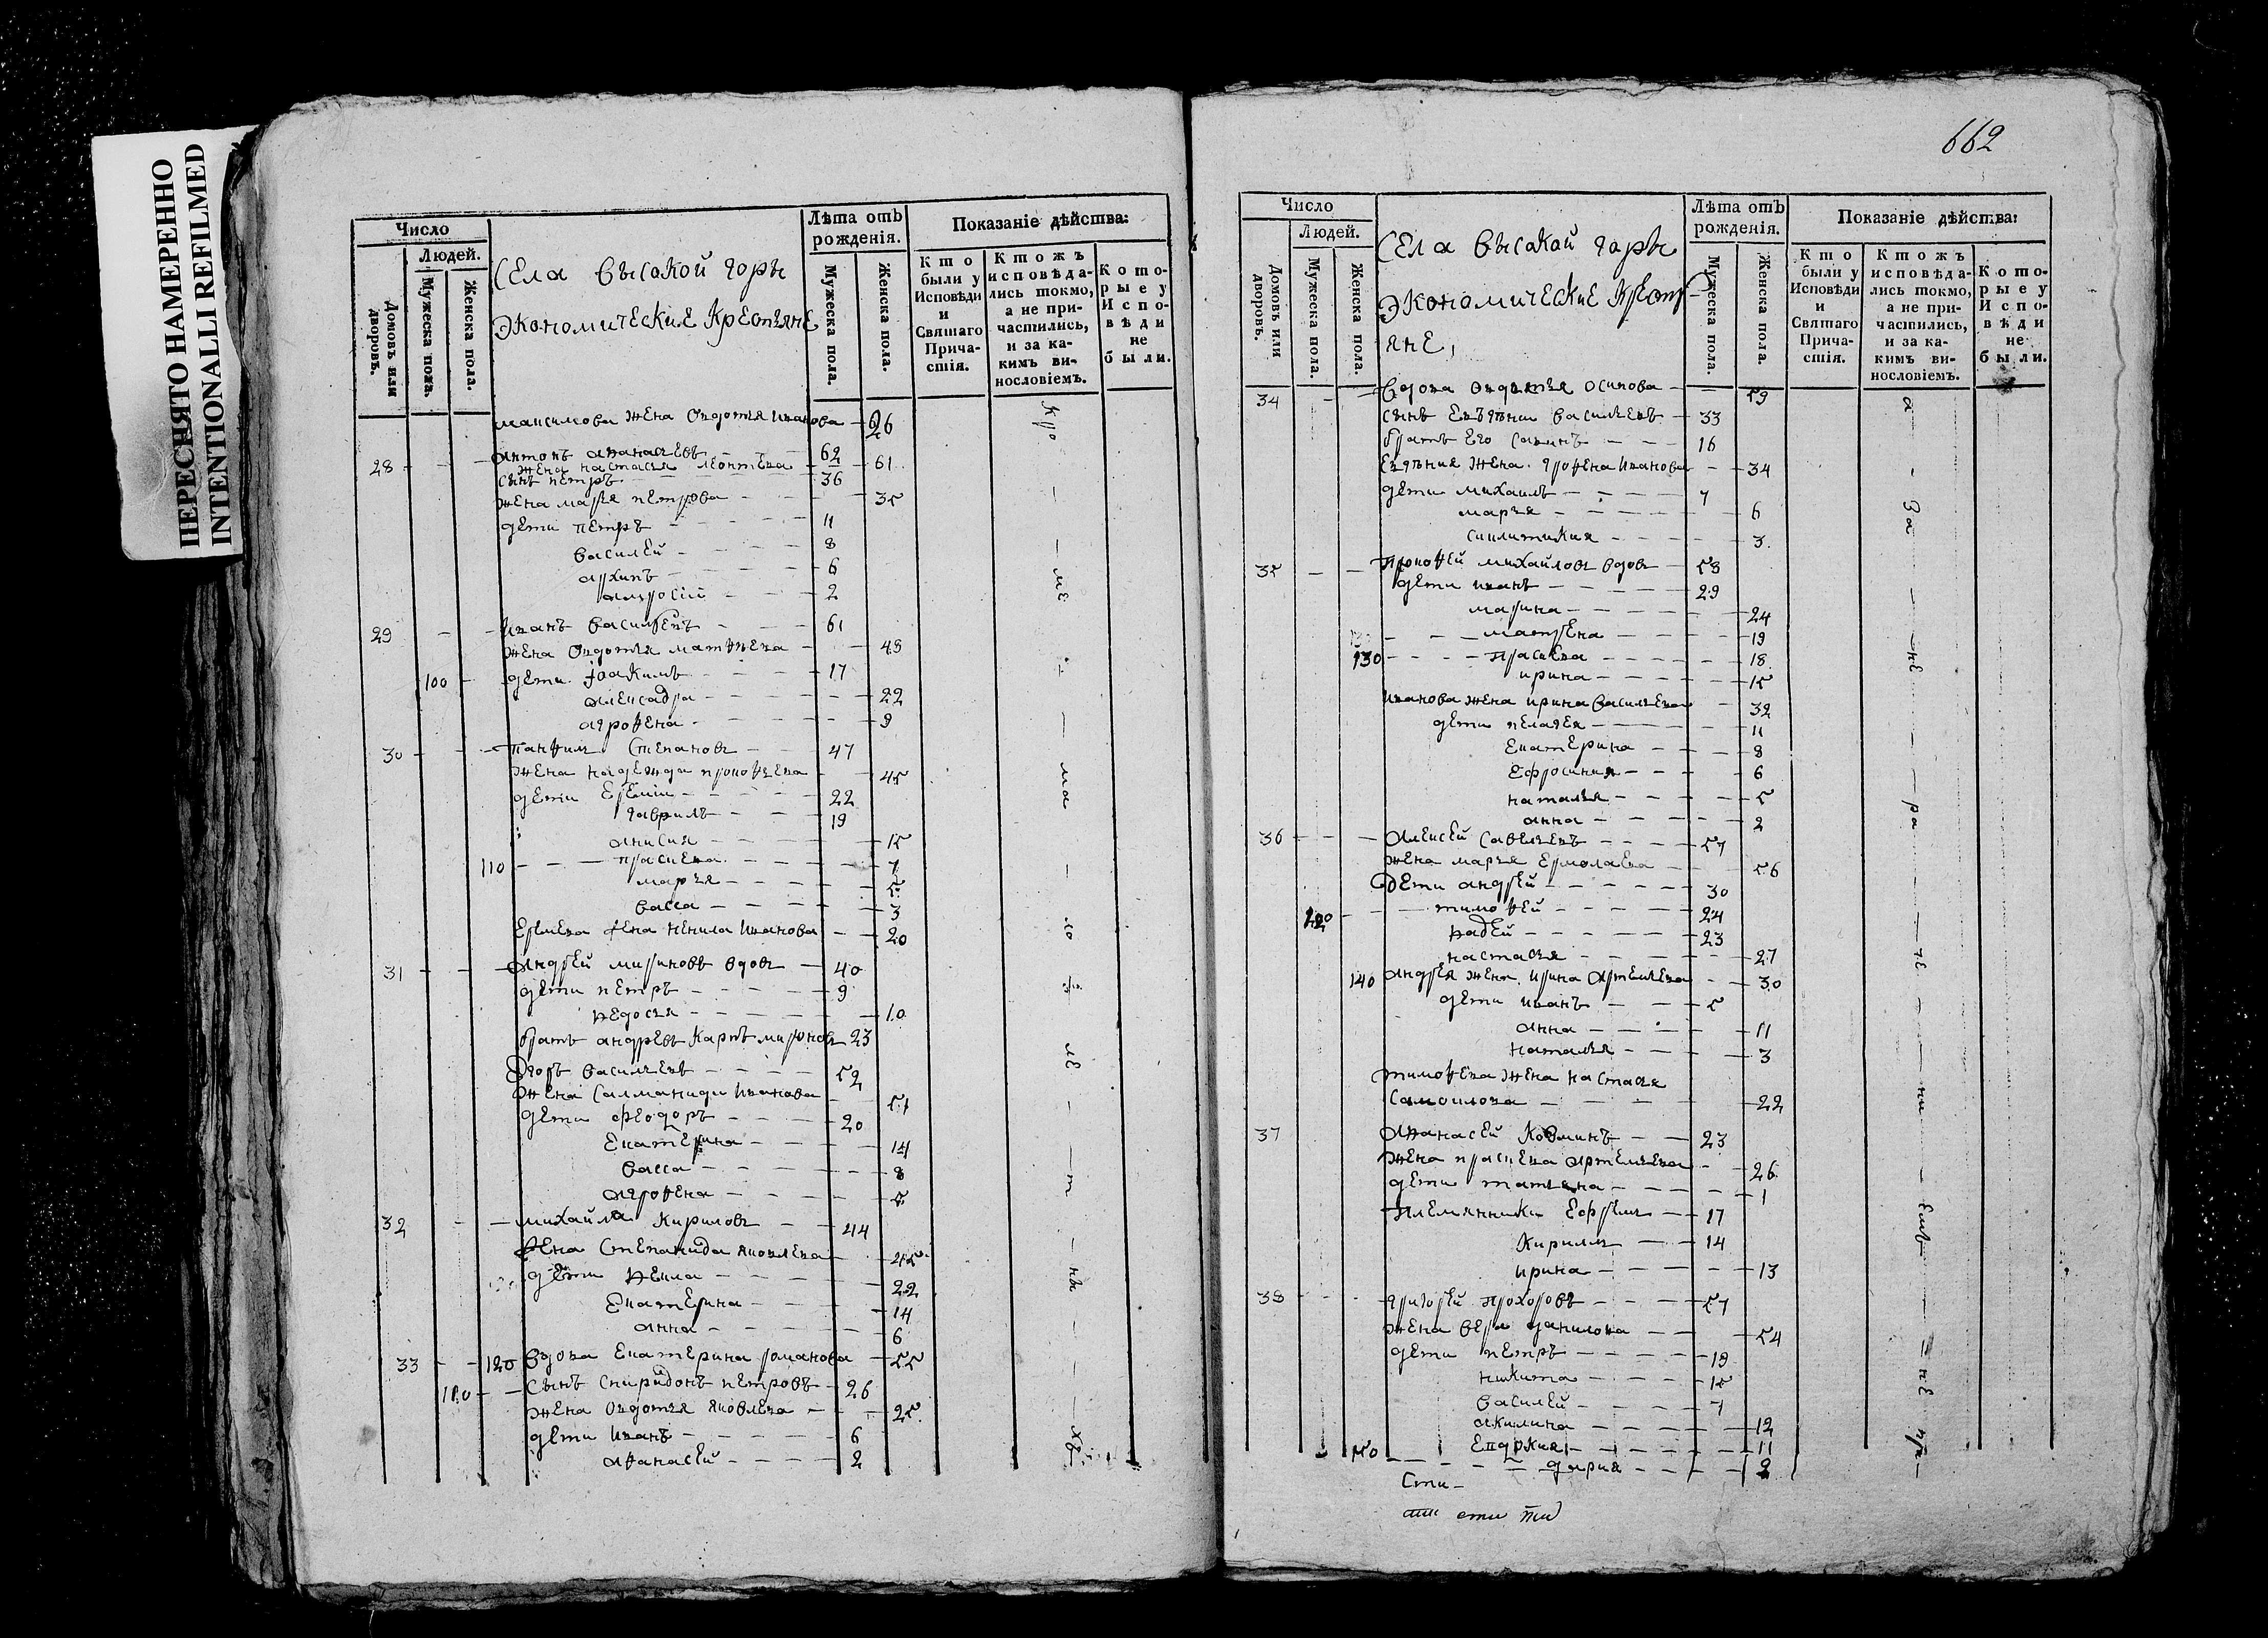 ПЕРЕСНЯТО НАМЕРЕННО
INTENTIONALLI REFILMED
Число
Людей.
Домовъ или дворовъ.
Мужеска пола.
Женска пола.
Села высокой горы
экономические крестьяне
Лѣта отъ рожденія.
Мужеска пола.
Женска пола.
Показаніе дѣйства:
Кто были у Исповѣди и Святаго Причастія.
Ктожъ исповѣдались токмо, а не причастились, и за какимъ винословіемъ.
Которые у Исповѣди не были.
максимова жена Овдотья Иванова
28 Антонъ Афанасьевъ 62
жена настасья леонтьева 61
сынъ петръ 36
жена марья петрова 35
дети петръ 11
василей 8
архипъ 6
амбросий 2
29 Иванъ васильевъ 61
жена Овдотья матвѣева 49
100 дети іоакимъ 17
алексадра 22
агрофена 9
30 панфилъ степановъ 47
жена надежда прокофьева 45
дети еремии 22
гаврилъ 19
анисия 15
110 прасковья 7
марья 5
васса 3
Еремева жена ненила иванова 20
31 Андрей мироновъ вдовъ 40
дети петръ 9
федосья 10
братъ андреевъ карпъ мироновъ 23
Егоръ васильевъ 52
жена саламанида Иванова 51
дети феодоръ 20
Екатерина 14
васса 8
агрофена 5
32 михайла кириловъ 44
жена степанида яковлева 45
дети фекла 22
Екатерина 14
анна 6
33 120 вдова Екатерина романова 55
110 сынъ спиридонъ петровъ 26
жена Овдотья яковлева 25
дети иванъ 6
афанасей 2
662
Число
Людей.
Домовъ или дворовъ.
Мужеска пола.
Женска пола.
Села высакой гары
экономические крестьяне,
Лѣта отъ рожденія.
Мужеска пола.
Женска пола.
Показаніе дѣйства:
Кто были у Исповѣди и Святаго Причастія.
Ктожъ исповѣдались токмо, а не причастились, и за какимъ винословіемъ.
Которые у Исповѣди не были.
34 вдова овдотья осипова 59
сынъ Евгѣни васильевъ 33
братъ его савинъ 16
Евгѣния жена агрофена Иванова 34
дети михаилъ 7
марья 6
синклитикия 3
35 прокофей михайловъ вдовъ 53
дети иванъ 29
марина 24
матрена 19
130 прасковья 18
ирина 15
иванова жена ирина васильева 32
дети пелагея 11
Екатерина 8
Ефросиния 6
наталья 5
анна 2
36 Алексей савельевъ 57
жена марья ермолаева 56
дети андрей 30
120 тимофей 24
фадей 23
настасья 27
140 андрея жена ирина артемьева 30
дети иванъ 5
анна 11
наталья 3
тимофеева жена настасья
самоилова 22
37 Афанасей козминъ 23
жена прасковья артемьева 26
дети татьяна 1
племянники Ефремъ 17
кириллъ 14
ирина 13
38 григорей прохоровъ 57
жена вера данилова 54
дети петръ 19
никита 15
василей 7
акилина 12
Евдокия 11
150 дария 2
сти
сти